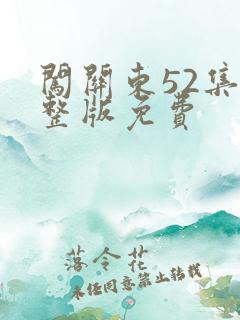 闖關東52集
整版免費
落令花
未经同意禁止转载